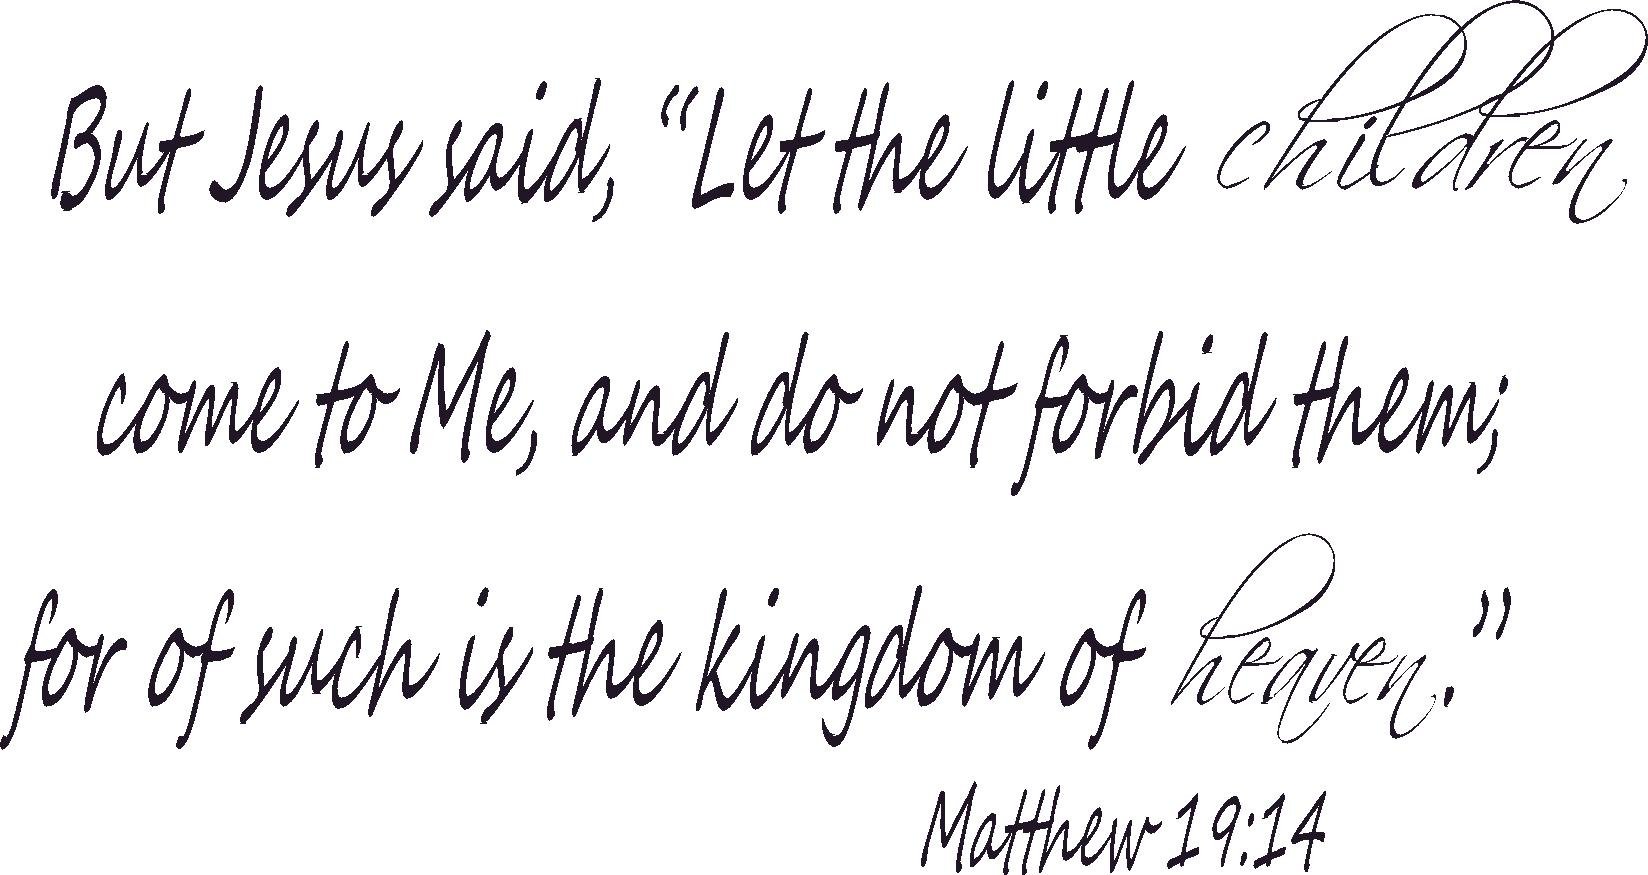 But Jesus said, “Let the little children
come to Me, and do not forbid them;
for of such is the kingdom of heaven.”
Matthew 19:14